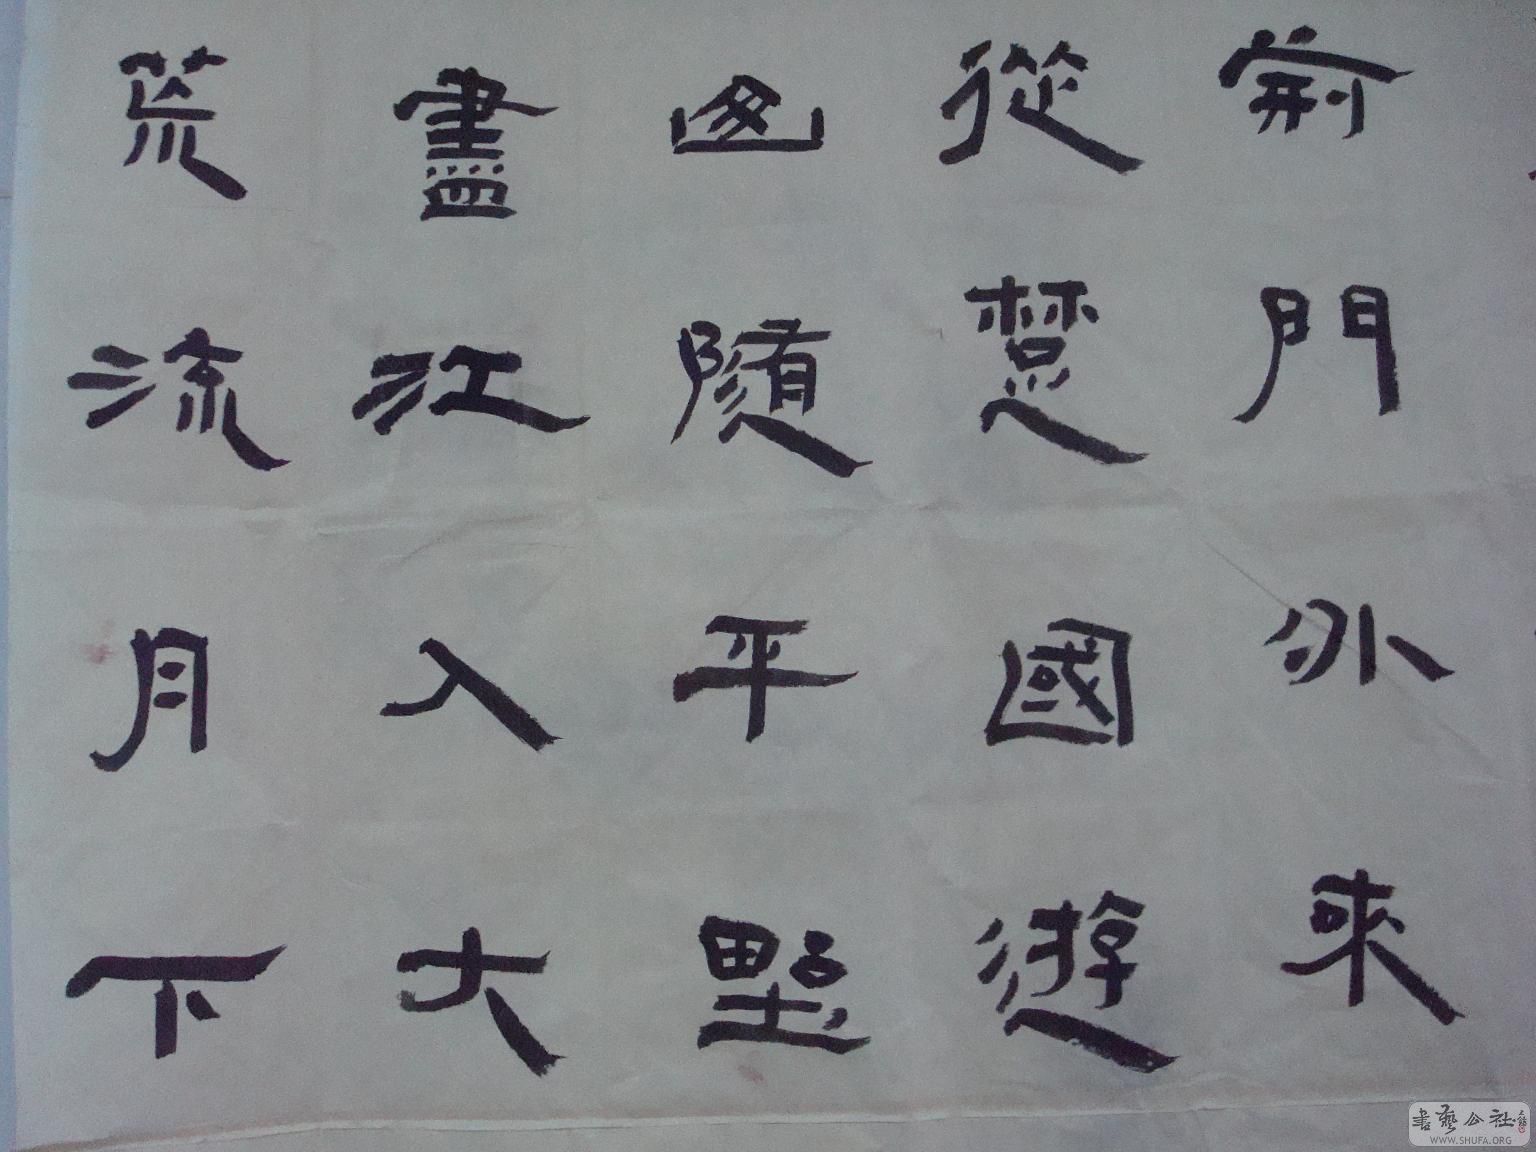 荊門外來
從楚國遊
山隨平野
盡江入大
荒流月下
書藝公社
WWW.SHUFA.ORG